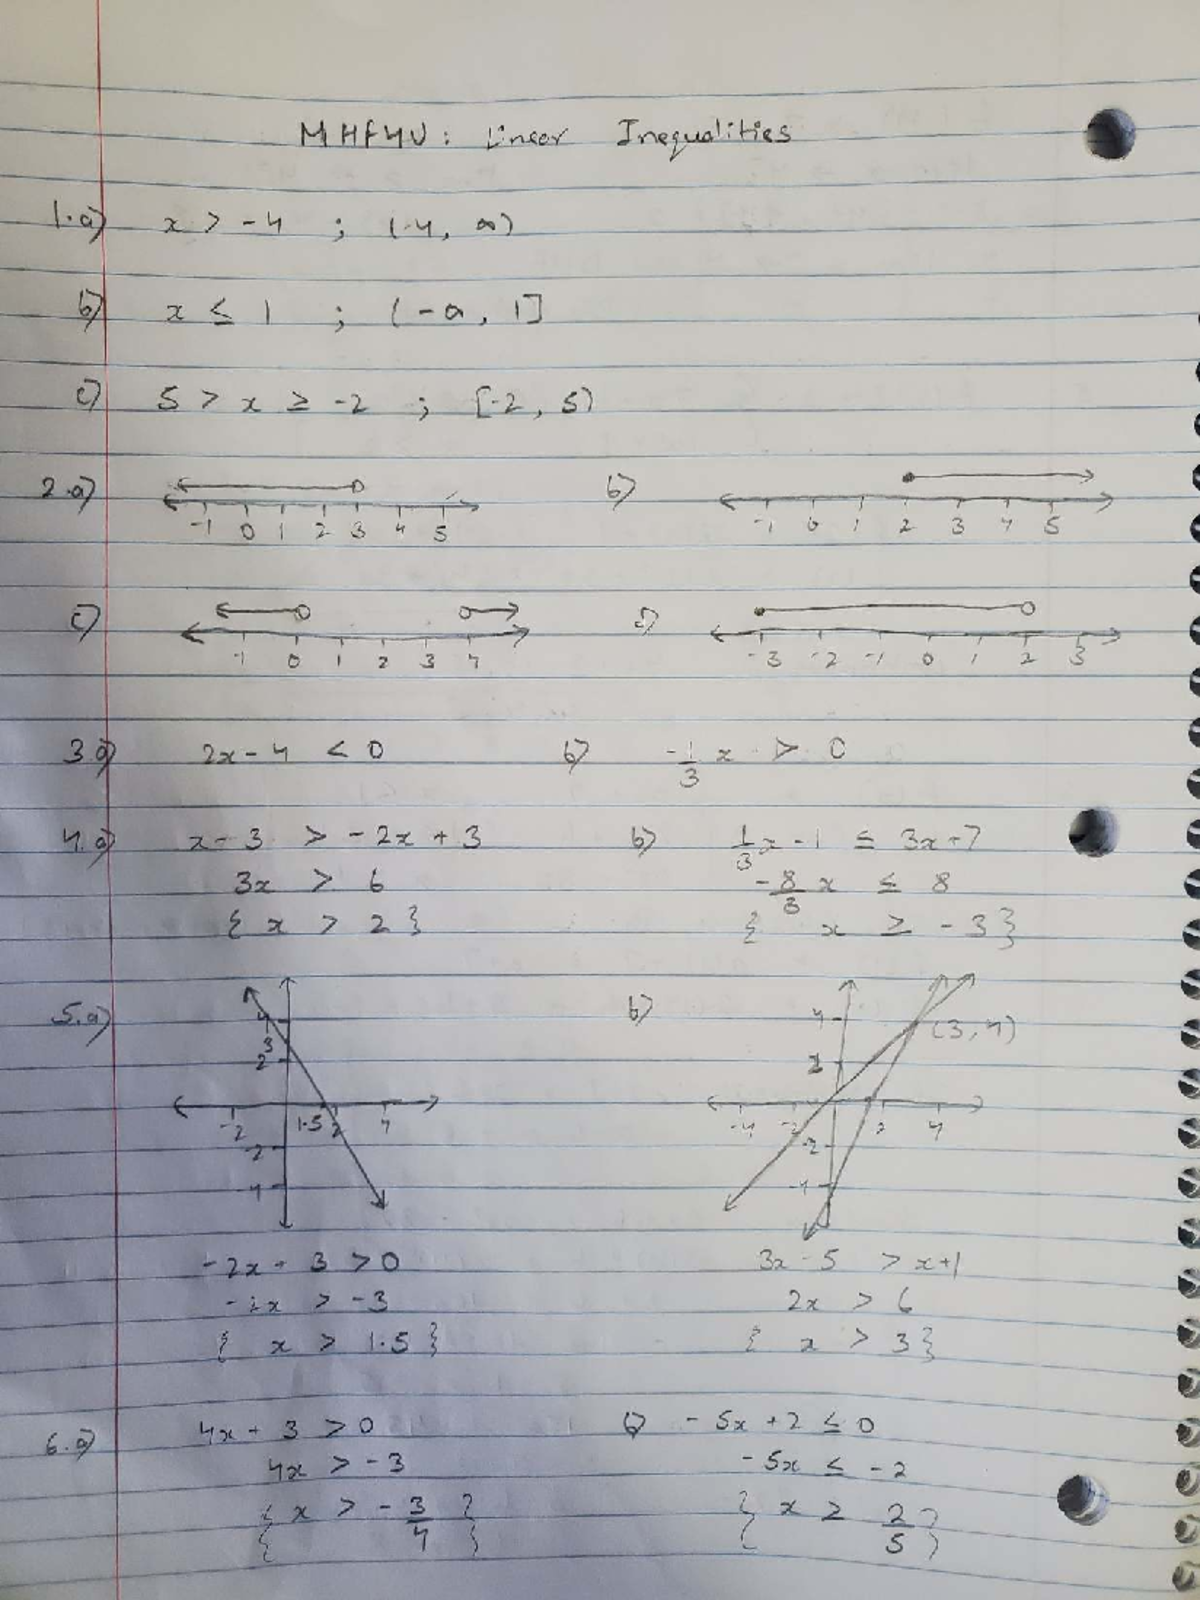 MHF4U: Linear Inequalities
1.a) x > -4 ; (-4, ∞)
b) x ≤ 1 ; (-∞, 1]
c) 5 > x ≥ -2 ; [-2, 5)
2.a) b)
-1 0 1 2 3 4 5 -1 0 1 2 3 4 5
c) d)
-1 0 1 2 3 4 -3 -2 -1 0 1 2 3
3 a) 2x - 4 < 0 b) -1/3 x > 0
4.a) x - 3 > -2x + 3 b) 1/3 x - 1 ≤ 3x + 7
3x > 6 -8/3 x ≤ 8
{ x > 2 } { x ≥ -3 }
5.a) b)
4 4 (3, 4)
3
2 2
-2 1.5 2 4 -4 -2 2 4
-2 -2
-4 -4
-2x + 3 > 0 3x - 5 > x + 1
-2x > -3 2x > 6
{ x > 1.5 } { x > 3 }
6.a) 4x + 3 > 0 b) -5x + 2 ≤ 0
4x > -3 -5x ≤ -2
{ x > -3/4 } { x ≥ 2/5 }